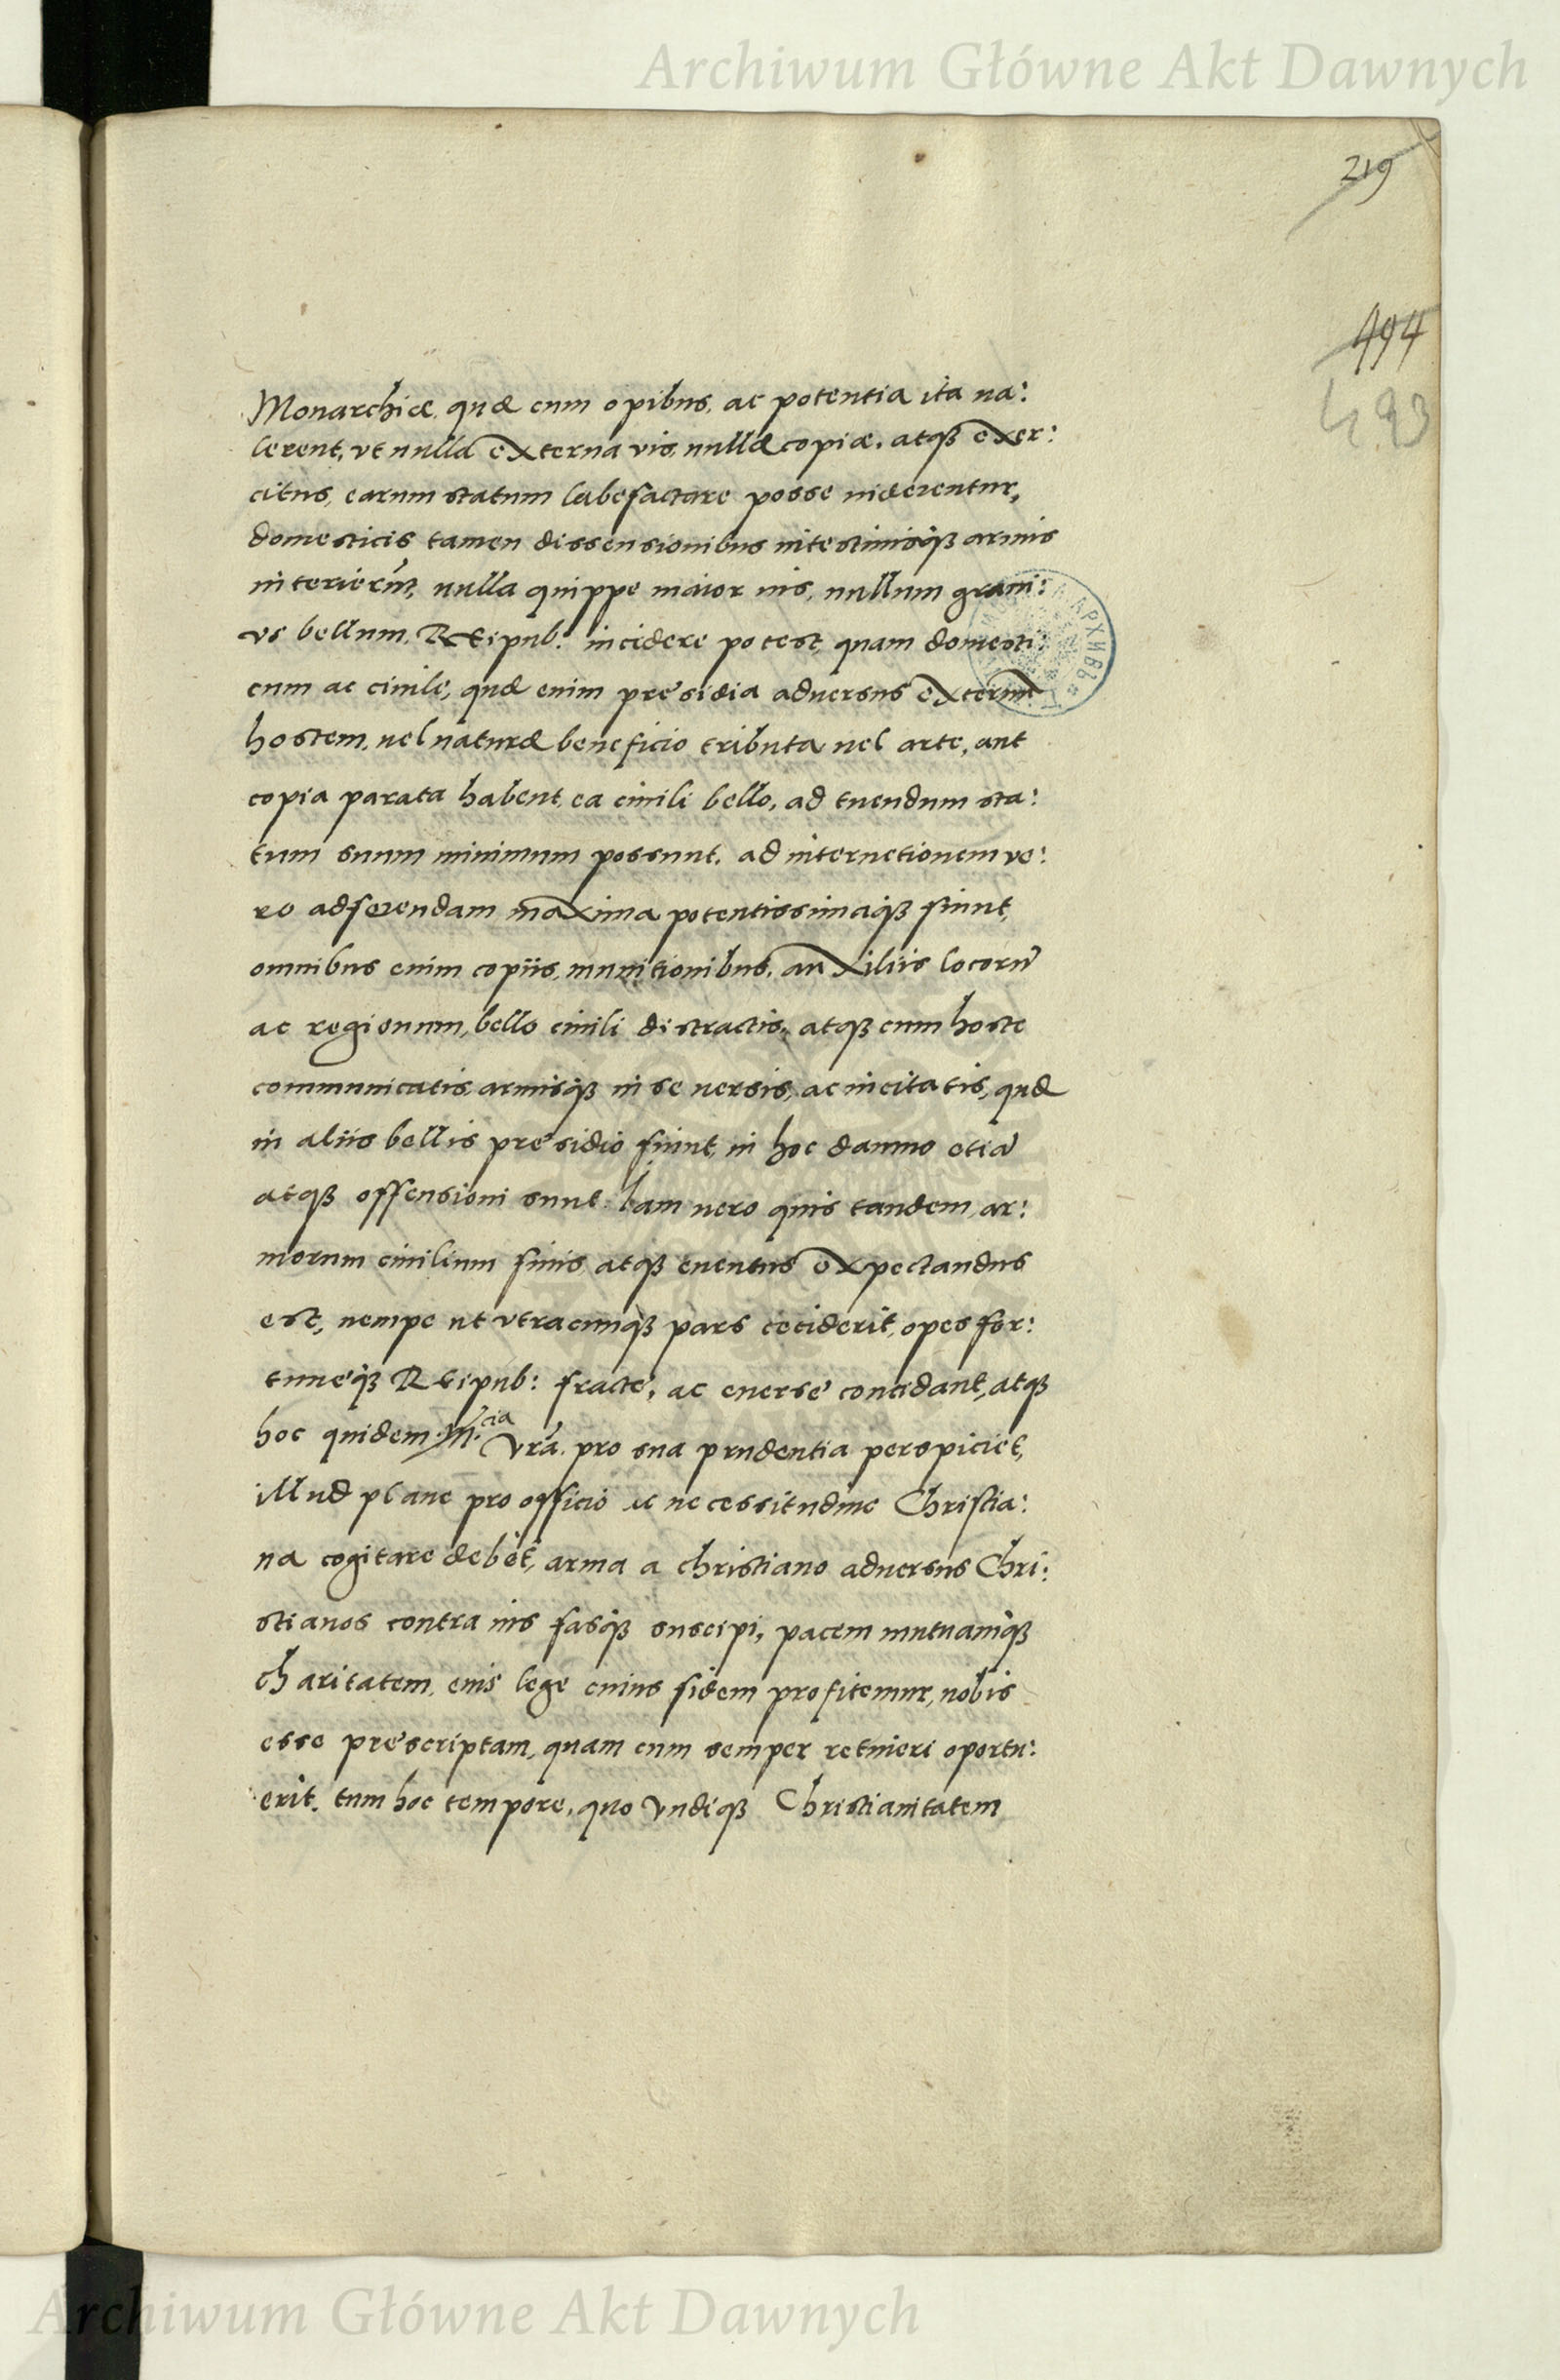 Archiwum Główne Akt Dawnych
219
494
493
Monarchiæ, quæ cum opibus, ac potentia ita ua:
lerent, vt nulla externa vis, nullæ copiæ, atqꝫ exer:
citus, earum statum labefactare posse uiderentur,
domesticis tamen dissensionibus intestinisqꝫ armis
interierūt, nulla quippe maior uis, nullum graui:
us bellum, Reipub: incidere potest, quam domesti:
cum ac ciuile, quæ enim presidia aduersus externū
hostem, uel naturæ beneficio tributa uel arte, aut
copia parata habent, ea ciuili bello, ad tuendum sta:
tum suum minimum possunt, ad internetionem ve:
ro adferendam maxima potentissimaqꝫ fiunt,
omnibus enim copiis, munitionibus, auxiliis locorū
ac regionum, bello ciuili distractis, atqꝫ cum hoste
communicatis, armisqꝫ in se uersis, ac incitatis, quæ
in aliis bellis presidio fiunt, in hoc damno etiā
atqꝫ offensioni sunt. Iam uero quis tandem, ar:
morum ciuilium finis, atqꝫ euentus expectandus
est, nempe ut vtracunqꝫ pars ceciderit, opes for:
tuneqꝫ Reipub: fracte, ac euerse concidant, atqꝫ
hoc quidem M.cia Vrā. pro sua prudentia perspiciet,
illud plane pro officio ac necessitudine Christia:
na cogitare debet, arma a christiano aduersus Chri:
stianos contra ius fasqꝫ suscipi, pacem mutuamqꝫ
charitatem, eius lege cuius fidem profitemur, nobis
esse prescriptam, quam cum semper retineri oportu:
erit, tum hoc tempore, quo vndiqꝫ Christianitatem
Archiwum Główne Akt Dawnych